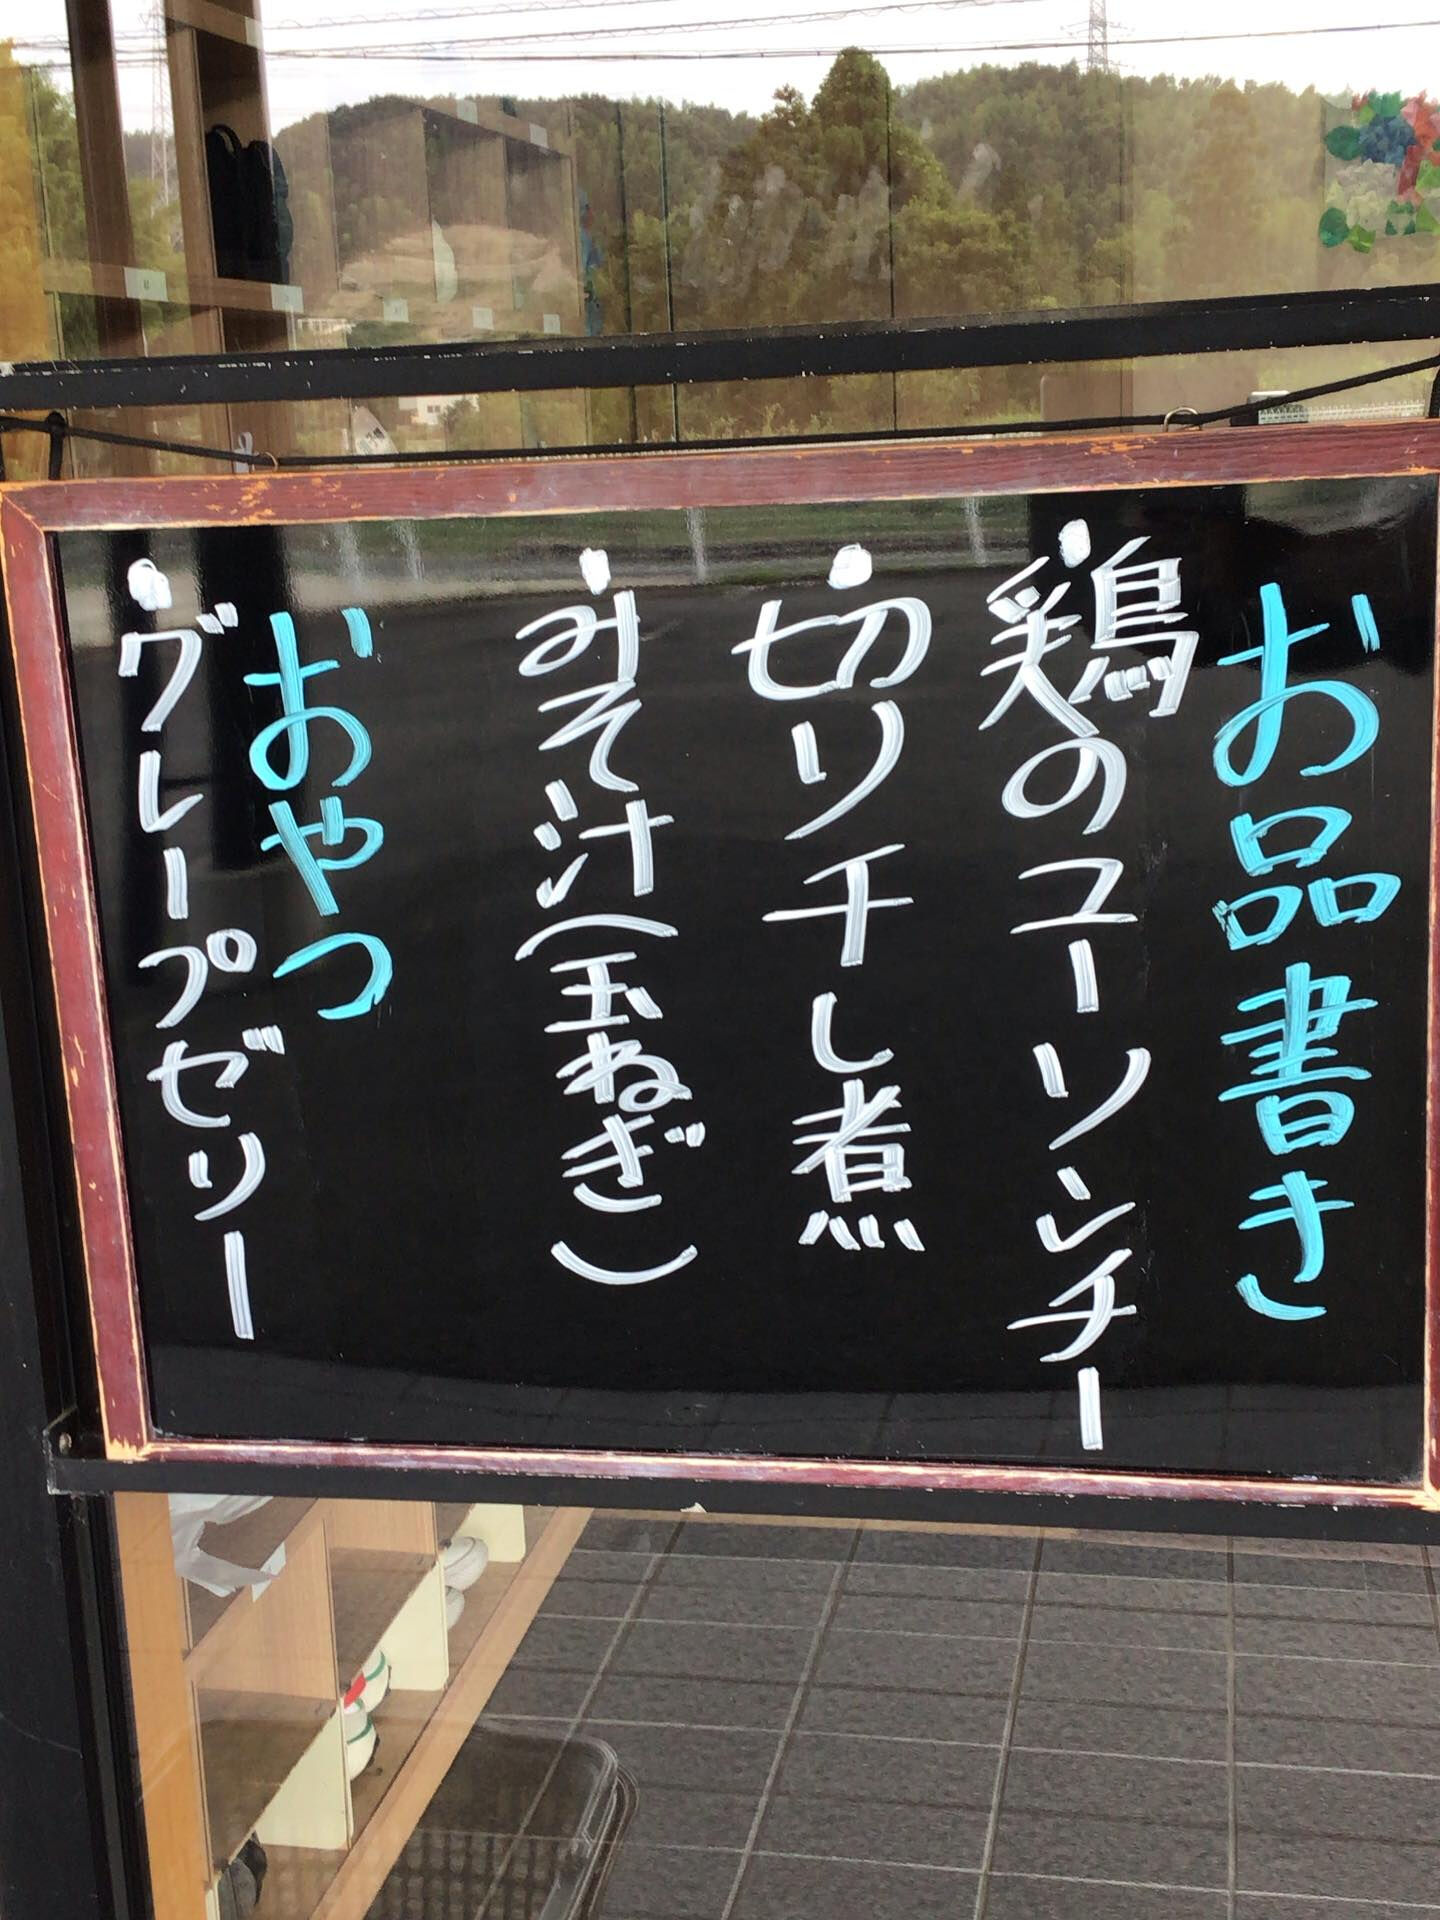 お品書き
・鶏のユーリンチー
・切り干し煮
・みそ汁(玉ねぎ)
おやつ
・グレープゼリー